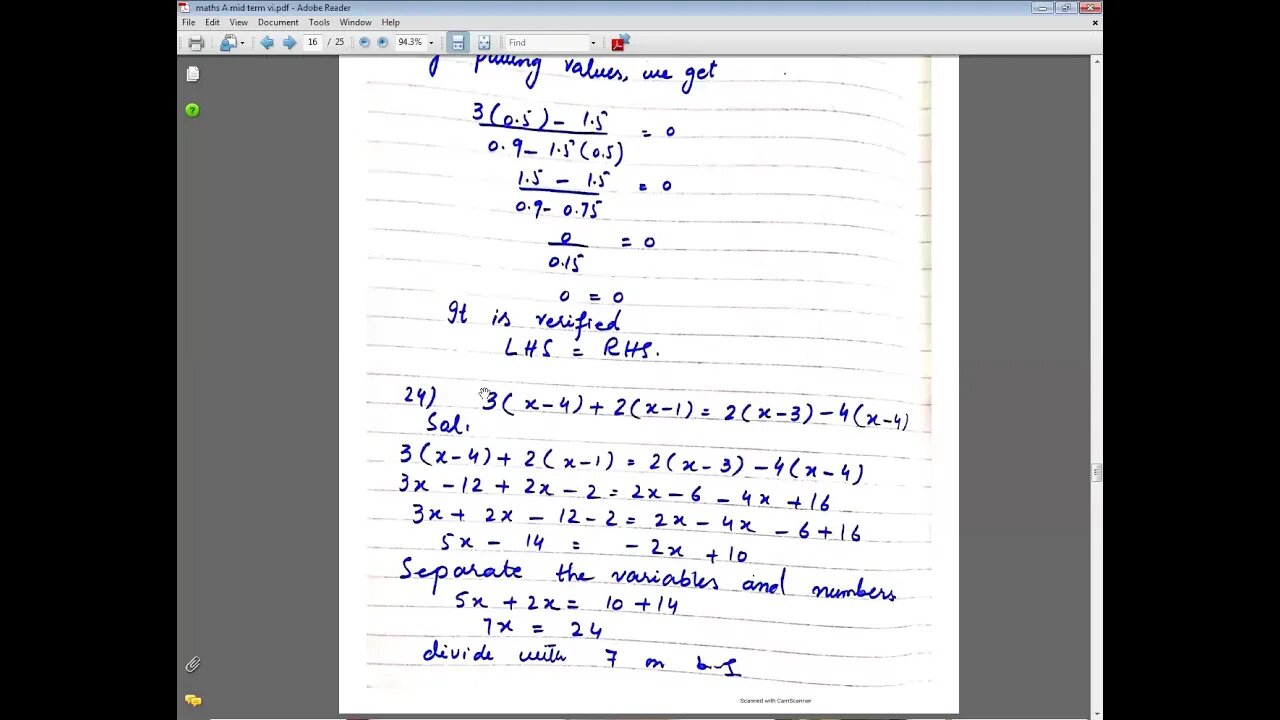 maths A mid term vi.pdf - Adobe Reader
File Edit View Document Tools Window Help
16 / 25 94.3% Find
putting values, we get
3(0.5) - 1.5 / 0.9 - 1.5(0.5) = 0
1.5 - 1.5 / 0.9 - 0.75 = 0
0 / 0.15 = 0
0 = 0
It is verified
LHS = RHS.
24) 3(x-4) + 2(x-1) = 2(x-3) - 4(x-4)
Sol.
3(x-4) + 2(x-1) = 2(x-3) - 4(x-4)
3x - 12 + 2x - 2 = 2x - 6 - 4x + 16
3x + 2x - 12 - 2 = 2x - 4x - 6 + 16
5x - 14 = - 2x + 10
Separate the variables and numbers
5x + 2x = 10 + 14
7x = 24
divide with 7 on b-s
Scanned with CamScanner